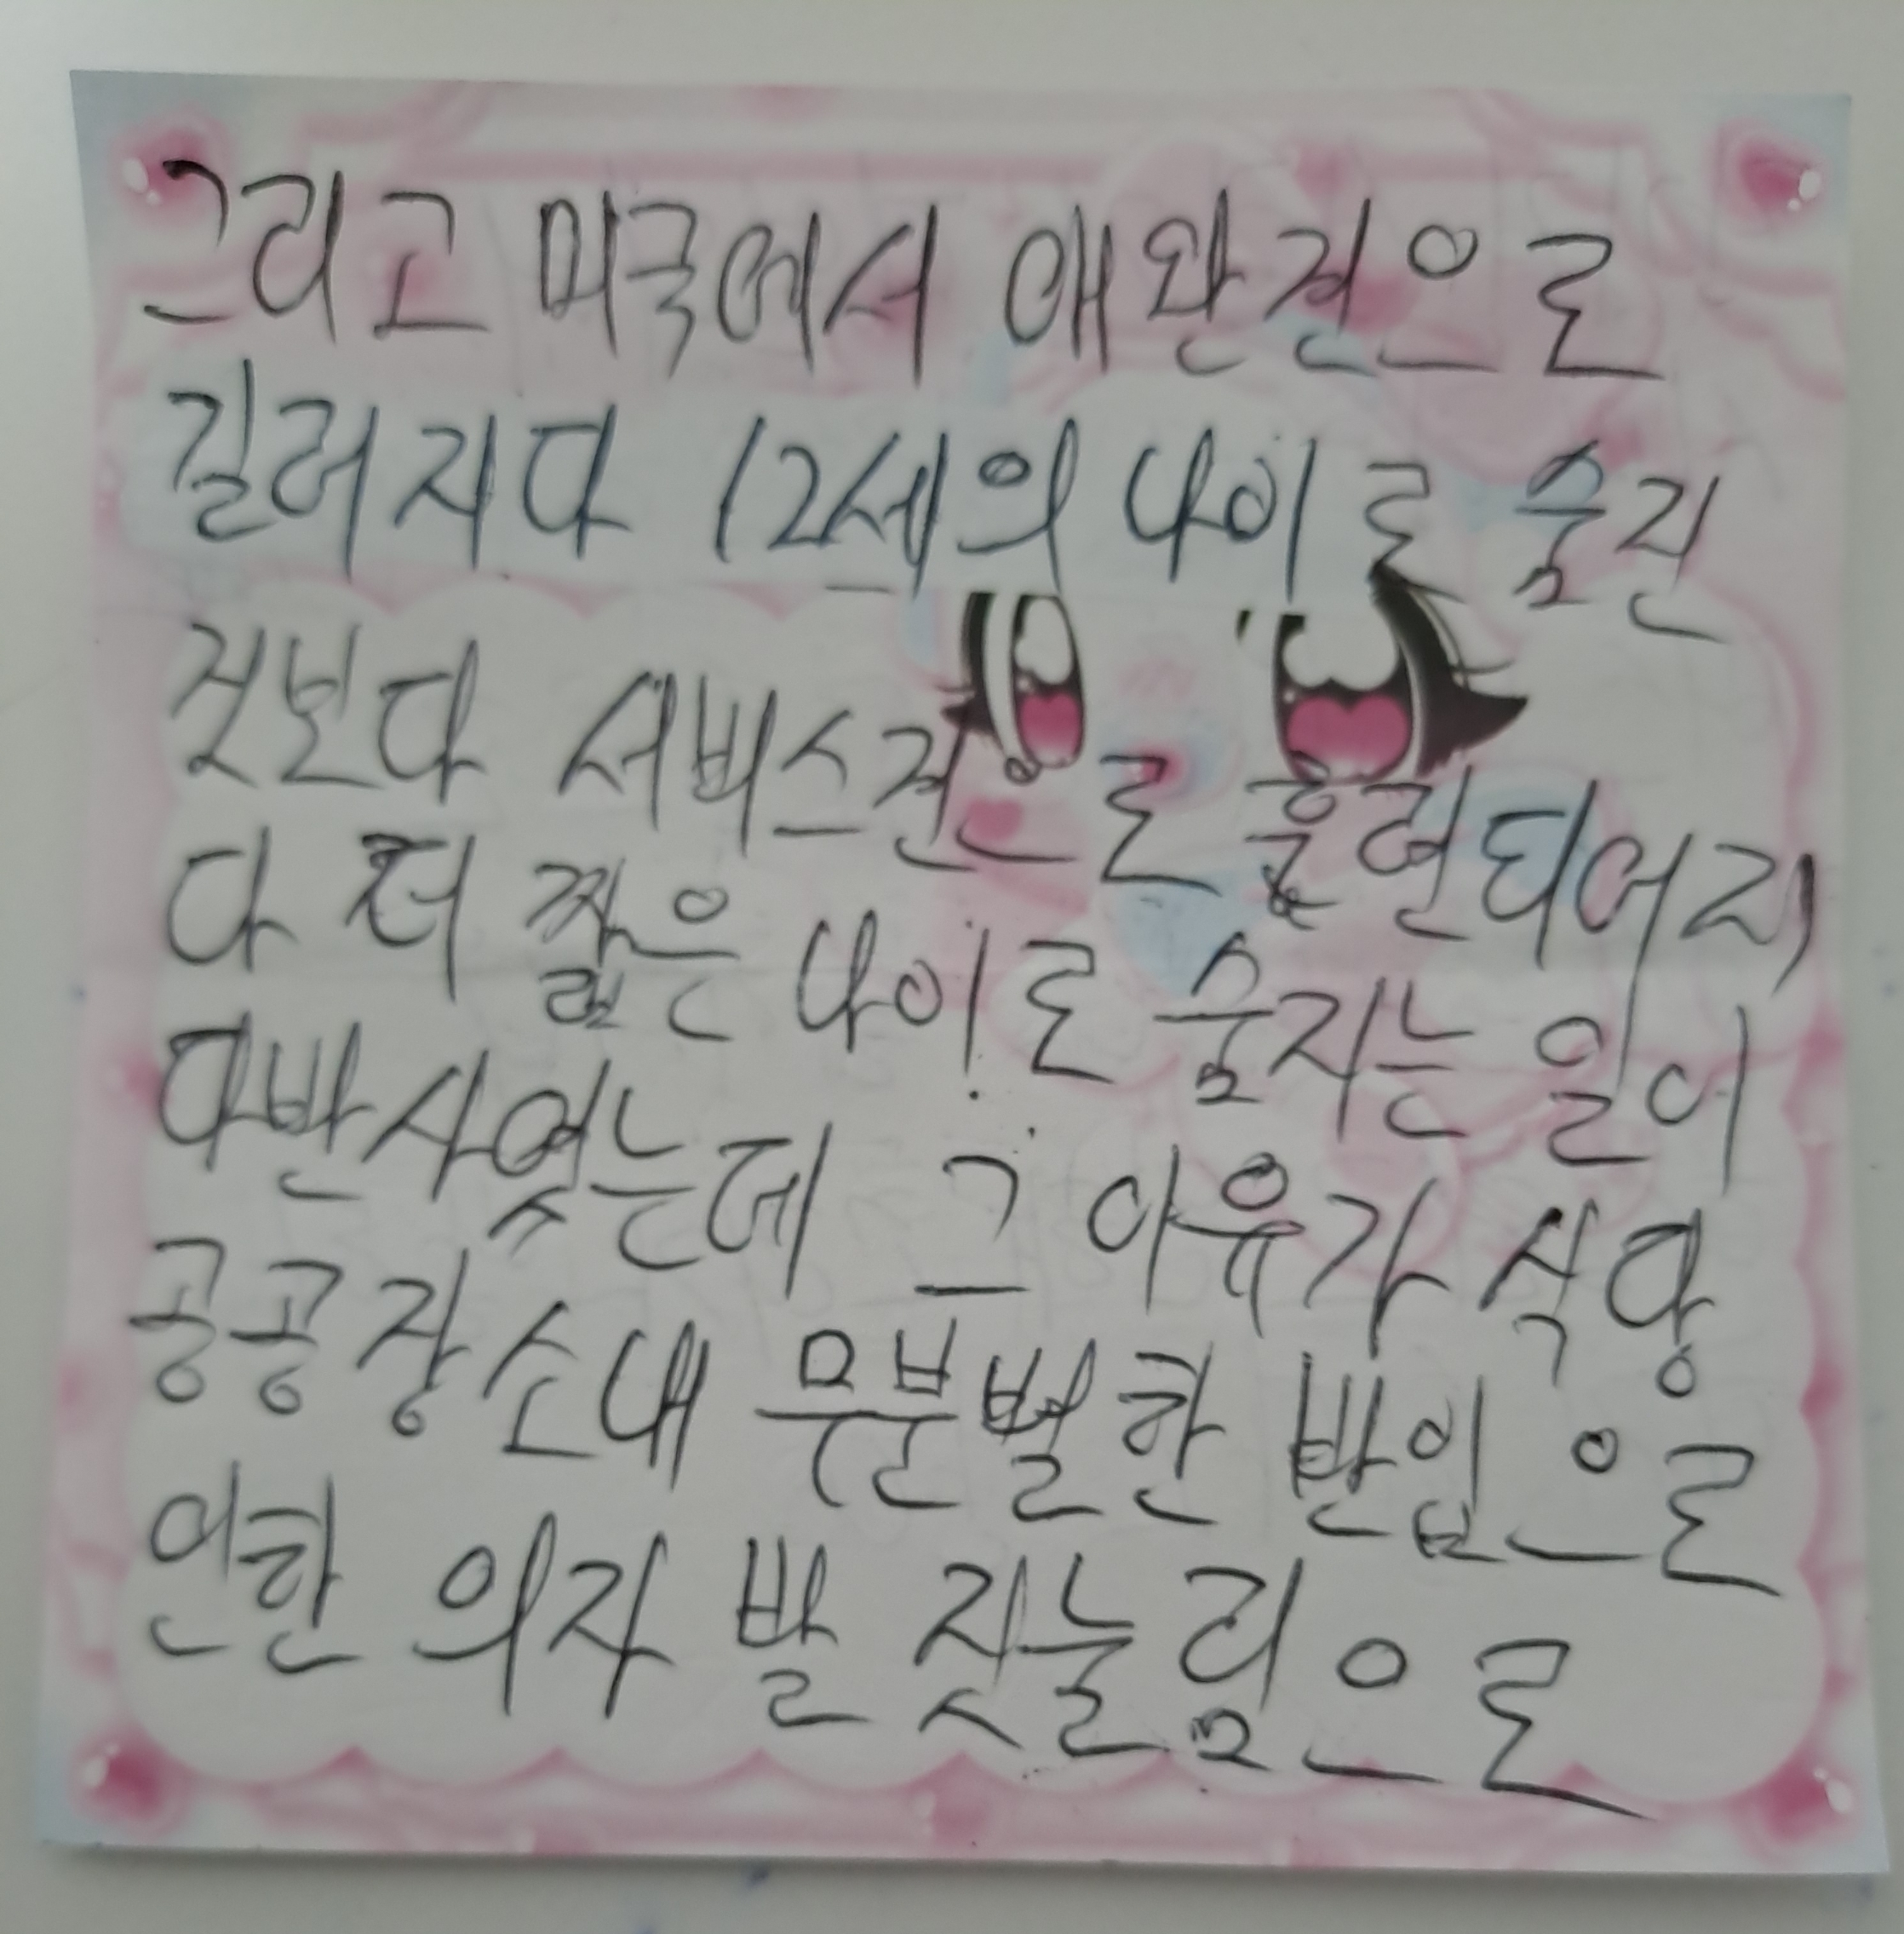 그리고 미국에서 애완견으로
길러지다 12세의 나이로 숨진
것보다 서비스견으로 훈련되어지
다 더 짧은 나이로 숨지는 일이
다반사였는데 그 이유가 식당
공공장소내 무분별한 반입으로
인한 의자 발 짓눌림으로